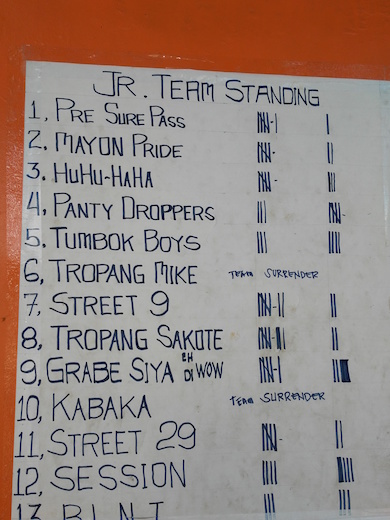 JR. TEAM STANDING
1, PRE SURE PASS
2. MAYON PRIDE
3. HUHU-HAHA
4, PANTY DROPPERS
5. TUMBOK BOYS
6, TROPANG MIKE TEAM SURRENDER
7, STREET 9
8, TROPANG SAKOTE
9, GRABE SIYA EH DI WOW
10, KABAKA TEAM SURRENDER
11, STREET 29
12, SESSION
13